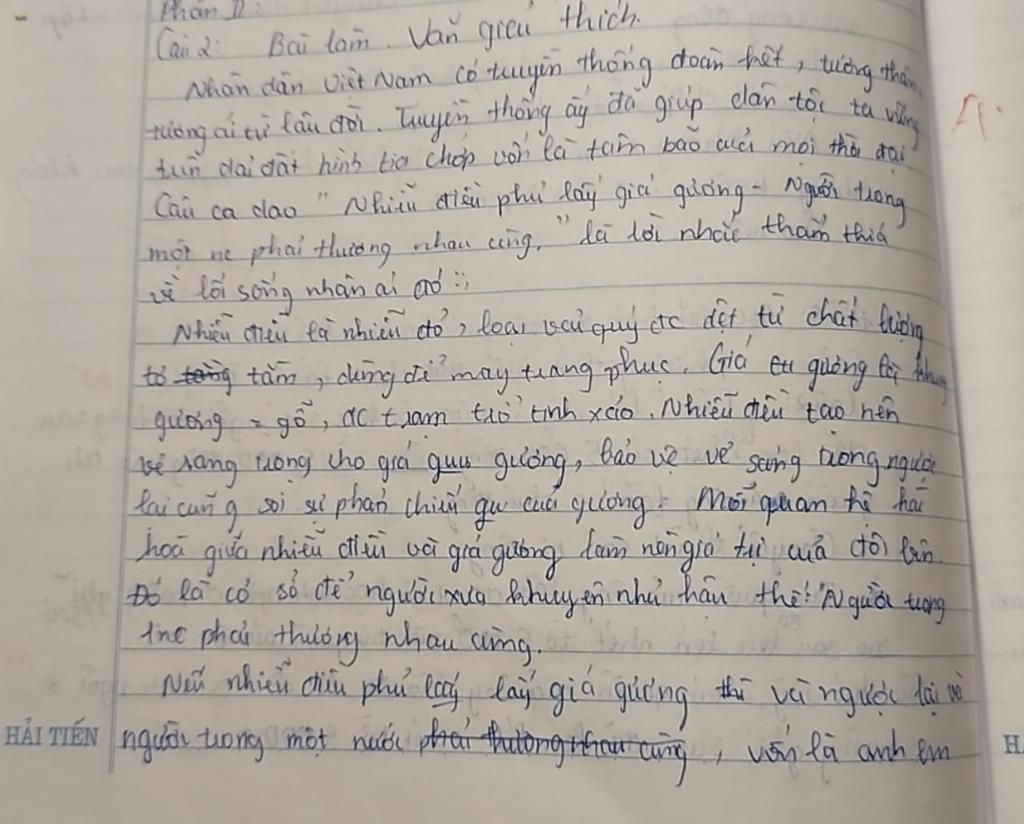 Phần II:
Câu 2: Bài làm. Văn giải thích.
Nhân dân Việt Nam có truyền thống đoàn kết, tương thân
tương ái từ lâu đời. Truyền thống ấy đã giúp dân tộc ta vững
trên dải đất hình tia chớp vốn là tâm bão của mọi thời đại
Câu ca dao "Nhiễu điều phủ lấy giá gương - Người trong
một nc phải thương nhau cùng." là lời nhắc thấm thía
về lối sống nhân ái đó
Nhiễu điều là nhiễu đỏ, loại vải quý đc dệt từ chất lượng
tơ tằm, dùng để may trang phục. Giá gương là khung
gương = gỗ, đc trạm trổ tinh xảo. Nhiễu điều tạo nên
vẻ sang trọng cho giá gương, bảo vệ vẻ sáng trong, ngược
lại cũng soi sự phản chiếu của gương. Mối quan hệ hài
hoà giữa nhiễu điều và giá gương làm nên giá trị của đôi bên.
Đó là cơ sở để người xưa khuyên nhủ hậu thế: "Người trong
1 nc phải thương nhau cùng.
Nếu nhiễu điều phủ lấy giá gương thì và ngược lại và
HẢI TIẾN người trong một nước phải thương nhau cùng, vốn là anh em